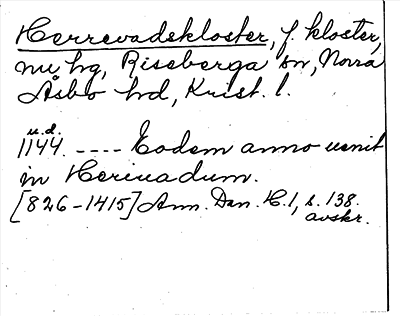 Herrevadskloster, f. kloster,
nu hg, Riseberga sn, Norra
Åsbo hd, Krist. l.
u.d.
1144. ---- Eodem anno uenit
in Heriuadum.
[826-1415] Ann. Dan. H. 1, s. 138.
avskr.